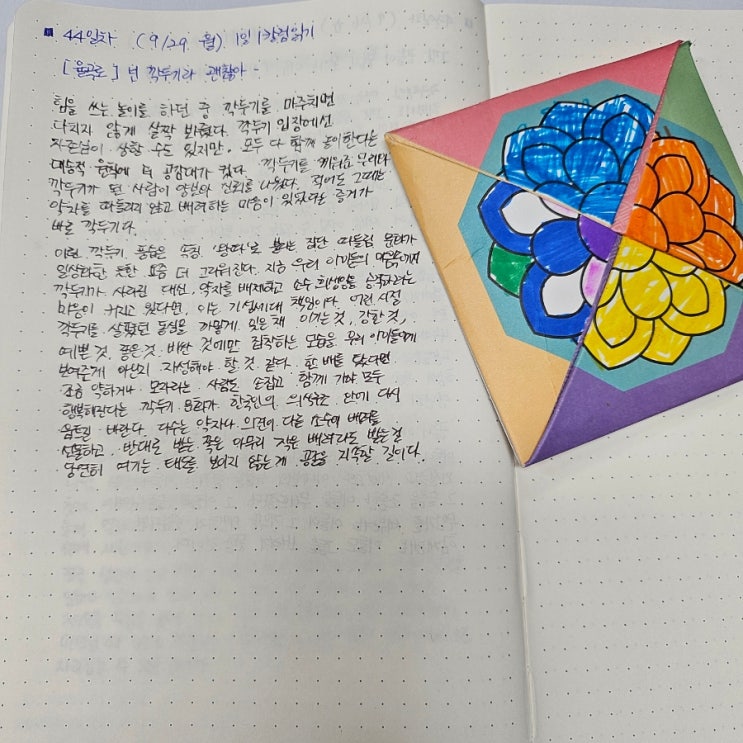 44일차 (9/29 월) 1일 1칼럼읽기
[율곡로] 넌 깍두기라 괜찮아 -
힘을 쓰는 놀이를 하던 중 깍두기를 마주치면
다치지 않게 살짝 봐줬다. 깍두기 입장에선
자존심이 상할 수도 있지만, 모두 다 함께 놀이한다는
대승적 움직에 더 공감대가 컸다. 깍두기를 끼워준 무리나
깍두기가 된 사람이 양보와 진리를 나눴다. 적어도 그때는
약자를 따돌리지 않고 배려하는 마음이 있었다는 증거가
바로 깍두기다.
이런 깍두기 풍습은 속칭 '왕따'로 불리는 집단 따돌림 문화가
일상화한 듯한 요즘 더 그리워진다. 지금 우리 아이들의 마음에서
깍두기가 사라진 대신, 약자를 배제하고 소수 희생양을 공격하려는
마음이 커지고 있다면, 이는 기성세대 책임이다. 어린 시절
깍두기를 살폈던 동심을 까맣게 잊은 채 이기는 것, 강한 것,
예쁜 것, 좋은 것, 비싼 것에만 집착하는 모습을 우리 아이들에게
보여준게 아닌지 자성해야 할 것 같다. 한 배를 탔다면
조금 약하거나 모자라는 사람도 손잡고 함께 가야 모두
행복해진다는 깍두기 문화가 한국인의 의식구조 안에 다시
움트길 바란다. 다수는 약자나 의견이 다른 소수에 배려를
선물하고, 반대로 받는 쪽은 아무리 작은 배려라도 받는걸
당연히 여기는 태도를 보이지 않는게 공존을 지속할 길이다.